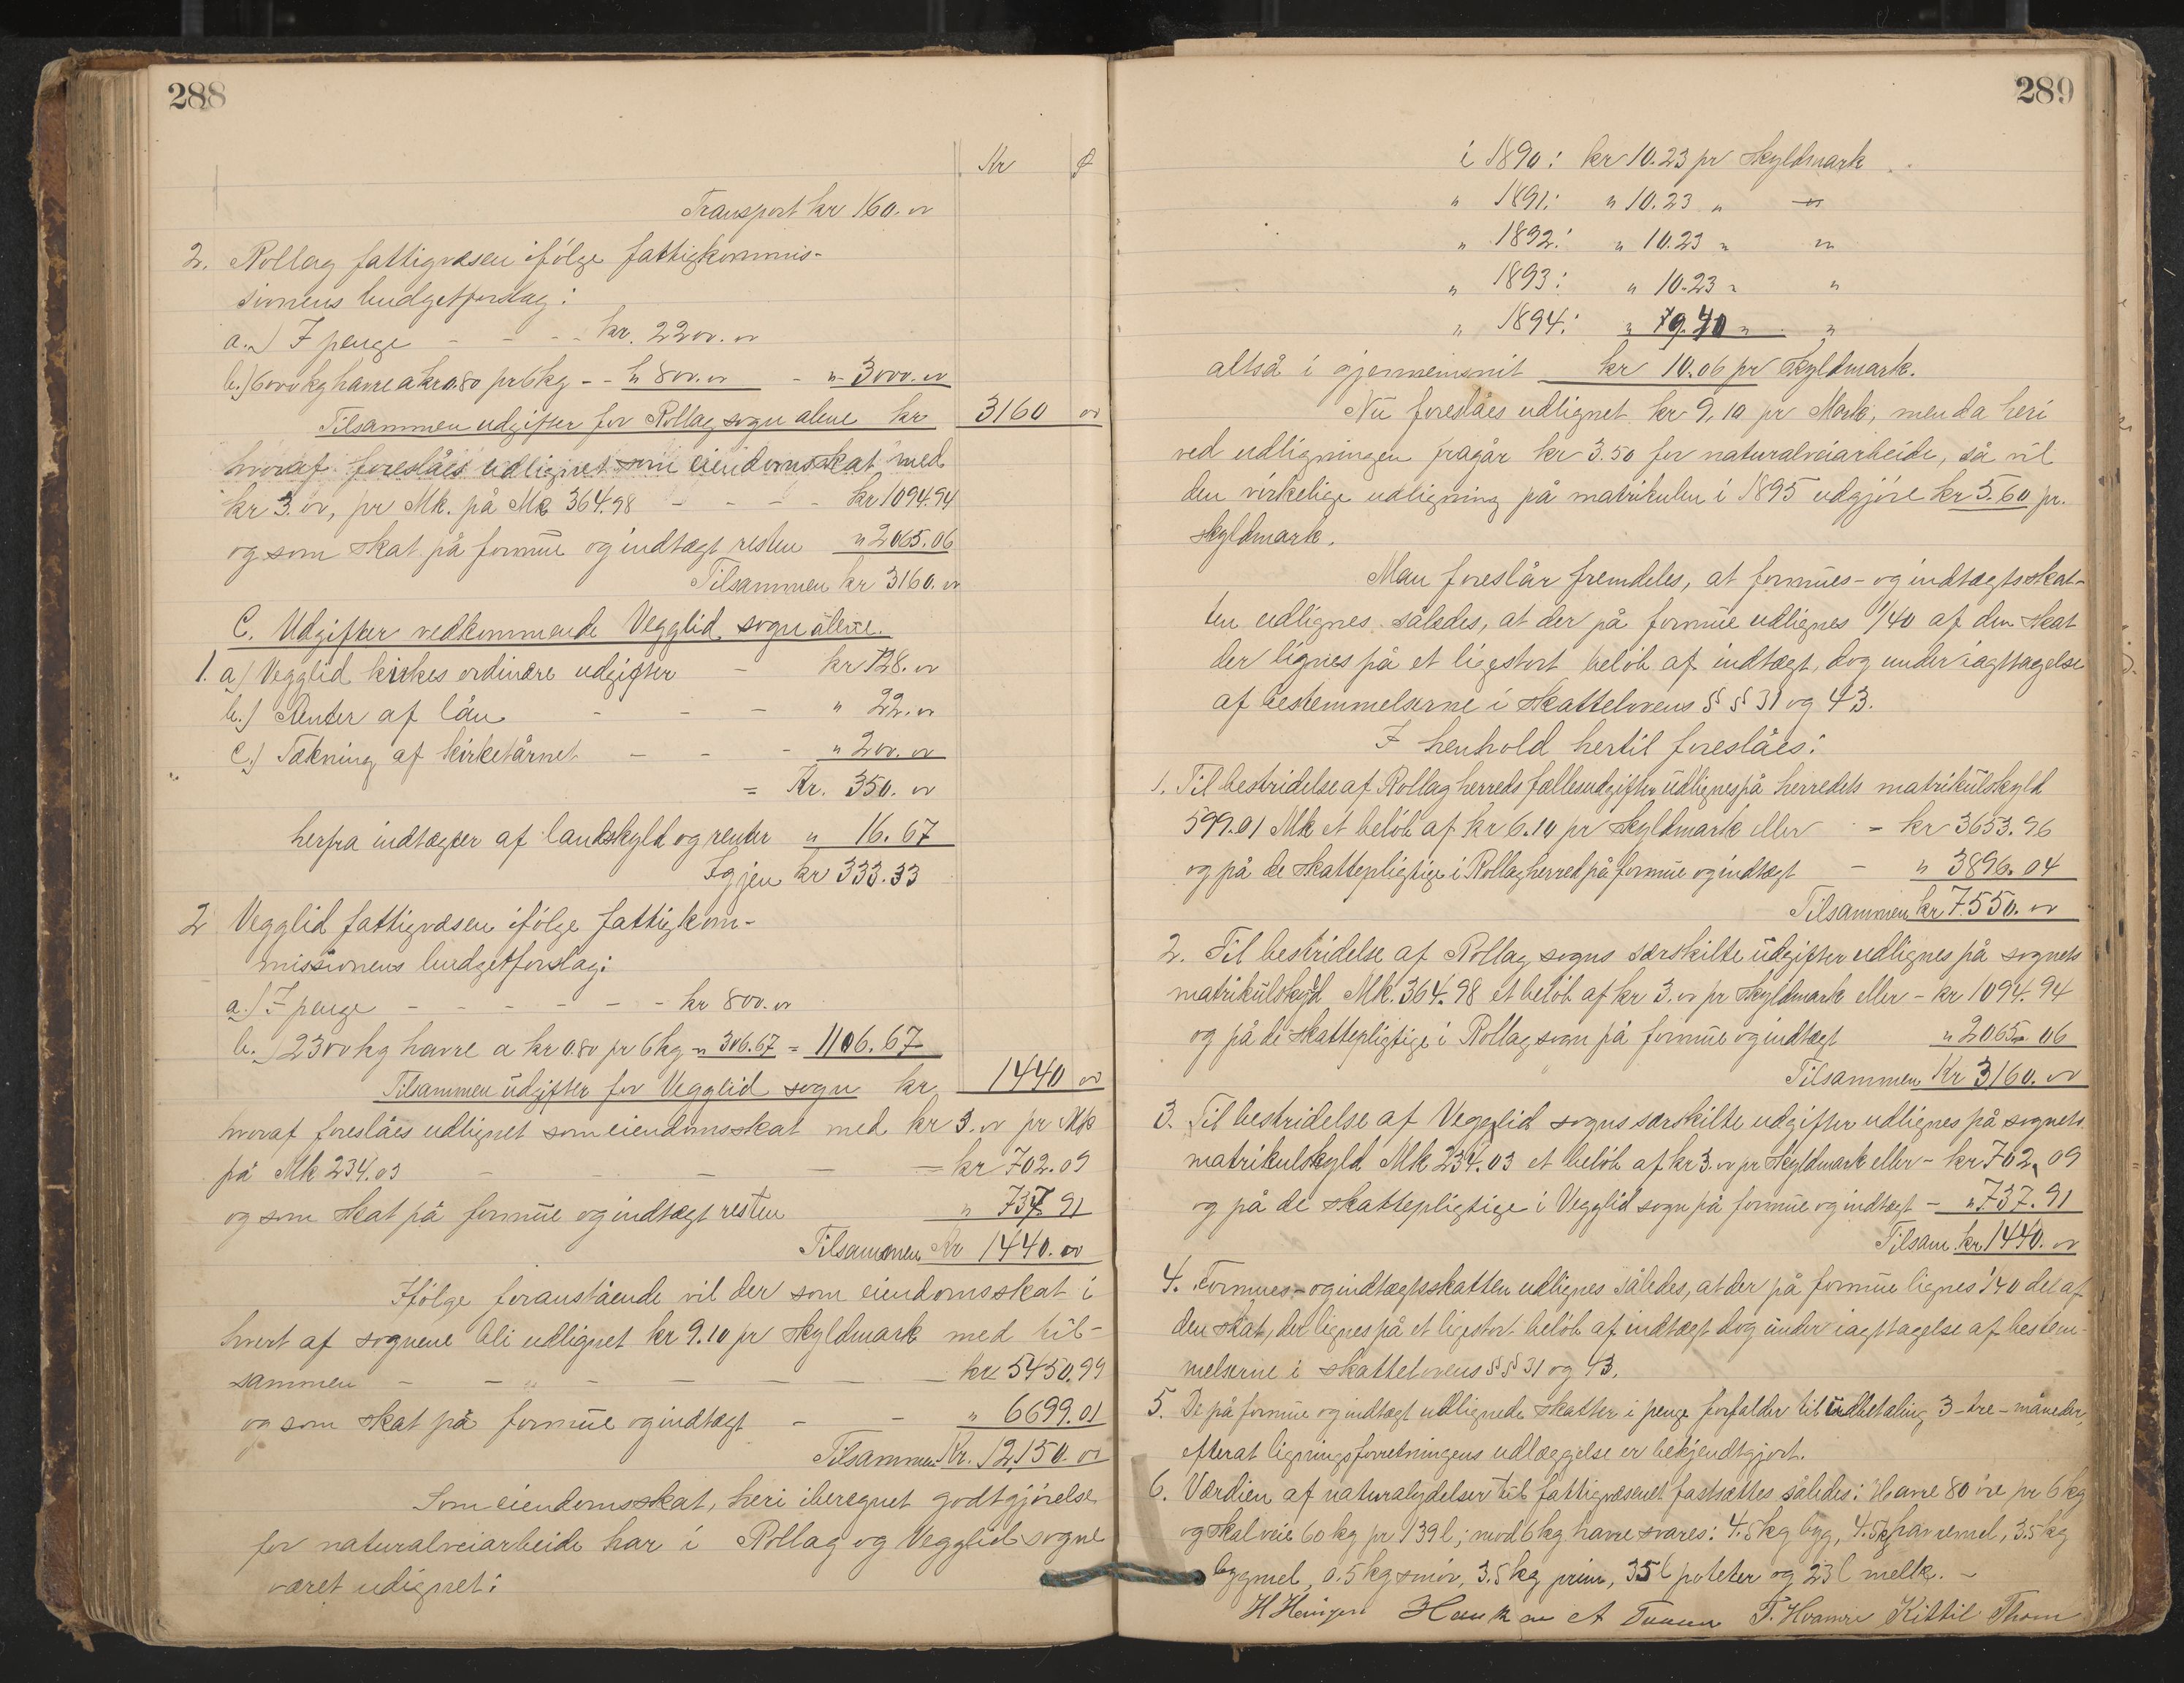 288
Kr ø
Transport kr 160.00
2. Rollag fattigvæsen ifølge fattigkommis-
sionens budgetforslag:
a.) I penge - - - kr. 2200.00
b.) 6000 kg havre a kr 0.80 pr 6 kg - - " 800.00 - " 3000.00
Tilsammen udgifter for Rollag sogn alene kr 3160 00
hvoraf foreslåes udlignet som eiendomsskat med
kr 3.00, pr Mk. på Mk 364.98 - - - - kr 1094.94
og som skat på formue og indtægt resten " 2065.06
Tilsammen kr 3160.00
C. Udgifter vedkommende Vegglid sogn alene.
1. a) Vegglid kirkes ordinære udgifter - kr 128.00
b.) Renter af lån - - - " 22.00
c.) Tækning af kirketårnet - - - " 200.00
= Kr. 350.00
herfra indtægter af landskyld og renter " 16.67
Igjen kr 333.33
2 Vegglid fattigvæsen ifølge fattigkom-
missionens budgetforslag:
a.) I penge - - - - - - kr 800.00
b.) 2300 kg havre a kr 0.80 pr 6 kg " 306.67 = 1106.67
Tilsammen udgifter for Vegglid sogn kr 1440 00
hvoraf foreslåes udlignet som eiendomsskat med kr 3.00 pr Mk
på Mk 234.03 - - - - - kr 702.09
og som skat på formue og indtægt resten " 737.91
Tilsammen Kr 1440.00
Ifølge foranstående vil der som eiendomsskat i
hvert af sognene bli udlignet kr 9.10 pr skyldmark med til-
sammen - - - - - - - kr 5450.99
og som skat på formue og indtægt - - " 6699.01
Tilsammen Kr. 12,150.00
Som eiendomsskat, heri iberegnet godtgjørelse
for naturalveiarbeide har i Rollag og Vegglid sogne
været udignet:
289
i 1890: kr 10.23 pr skyldmark
" 1891: " 10.23 " "
" 1892: " 10.23 " "
" 1893: " 10.23 " "
" 1894: " 9.40 " "
altså i gjennemsnit kr 10.06 pr skyldmark.
Nu foreslåes udlignet kr 9,10 pr Mark, men da heri
ved udligningen fragår kr 3.50 for naturalveiarbeide, så vil
den virkelige udligning på matrikulen i 1895 udgjøre kr 5.60 pr.
skyldmark.
Man foreslår fremdeles, at formues- og indtægtsskat-
ten udlignes således, at der på formue udlignes 1/40 af den skat
der lignes på et ligestort beløb af indtægt, dog under iagttagelse
af bestemmelserne i skattelovens §§ 31 og 43.
I henhold hertil foreslåes:
1. Til bestridelse af Rollag herreds fællesudgifter udlignes på herredets matrikulskyld
599.01 Mk et beløb af kr 6.10 pr skyldmark eller - kr 3653.96
og på de skattepligtige i Rollag herred på formue og indtægt - " 3896.04
Tilsammen kr 7550.00
2. Til bestridelse af Rollag sogns særskilte udgifter udlignes på sognets
matrikulskyld Mk. 364.98 et beløb af kr 3.00 pr skyldmark eller - kr 1094.94
og på de skattepligtige i Rollag sogn på formue og indtægt " 2065.06
Tilsammen Kr 3160.00
3. Til bestridelse af Vegglid sogns særskilte udgifter udlignes på sognets
matrikulskyld Mk 234.03 et beløb af kr 3.00 pr skyldmark eller - kr 702,09
og på de skattepligtige i Vegglid sogn på formue og indtægt - " 737.91
Tilsam. kr 1440.00
4. Formues- og indtægtsskatten udlignes således, at der på formue lignes 1/40 del af
den skat, der lignes på et ligestort beløb af indtægt dog under iagttagelse af bestem-
melserne i skattelovens §§ 31 og 43.
5. De på formue og indtægt udlignede skatter i penge forfalder til udbetaling 3 - tre - måneder,
efterat ligningsforretningens udlæggelse er bekjendtgjort.
6. Værdien af naturalydelser til fattigvæsenet fastsættes således: Havre 80 øre pr 6 kg
og skal veie 60 kg pr 139 l; mod 6 kg havre svares: 4.5 kg byg, 4.5 kg havremel, 3.5 kg
bygmel, 0.5 kg smør, 3.5 kg prim, 35 l poteter og 23 l melk. -
H Heinjen A T. Hvamre Kittil Thom